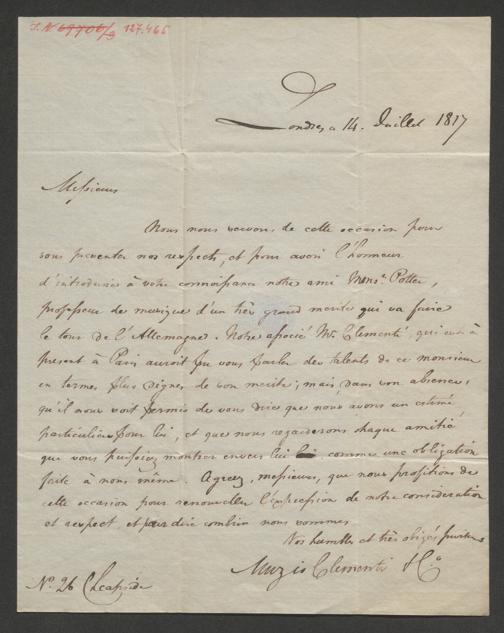 I.N 69706/3 127.465
Londres a 14. Juillet 1817
Messieurs
Nous nous servons de cette occasion pour
vous presenter nos respects, et pour avoir l'honneur
d'introduire à votre connoissance notre ami Monsr. Potter,
professeur de musique d'un très grand merite qui va faire
le tour de l'Allemagne. Notre associé Mr. Clementi, qui est à
present à Paris auroit pu vous parler des talents de ce monsieur
en termes plus dignes de son merite; mais dans son absence,
qu'il nous soit permis de vous dire que nous avons un estime
particuliere pour lui, et que nous regarderons chaque amitié
que vous puissiez montrer envers lui comme une obligation
faite à nous même. Agreez, messieurs, que nous profitions de
cette occasion pour renouveller l'expression de notre consideration
et respect, et pour dire combien nous sommes
Vos humbles et très obligés
Muzio Clementi & Co.
No. 26 Cheapside